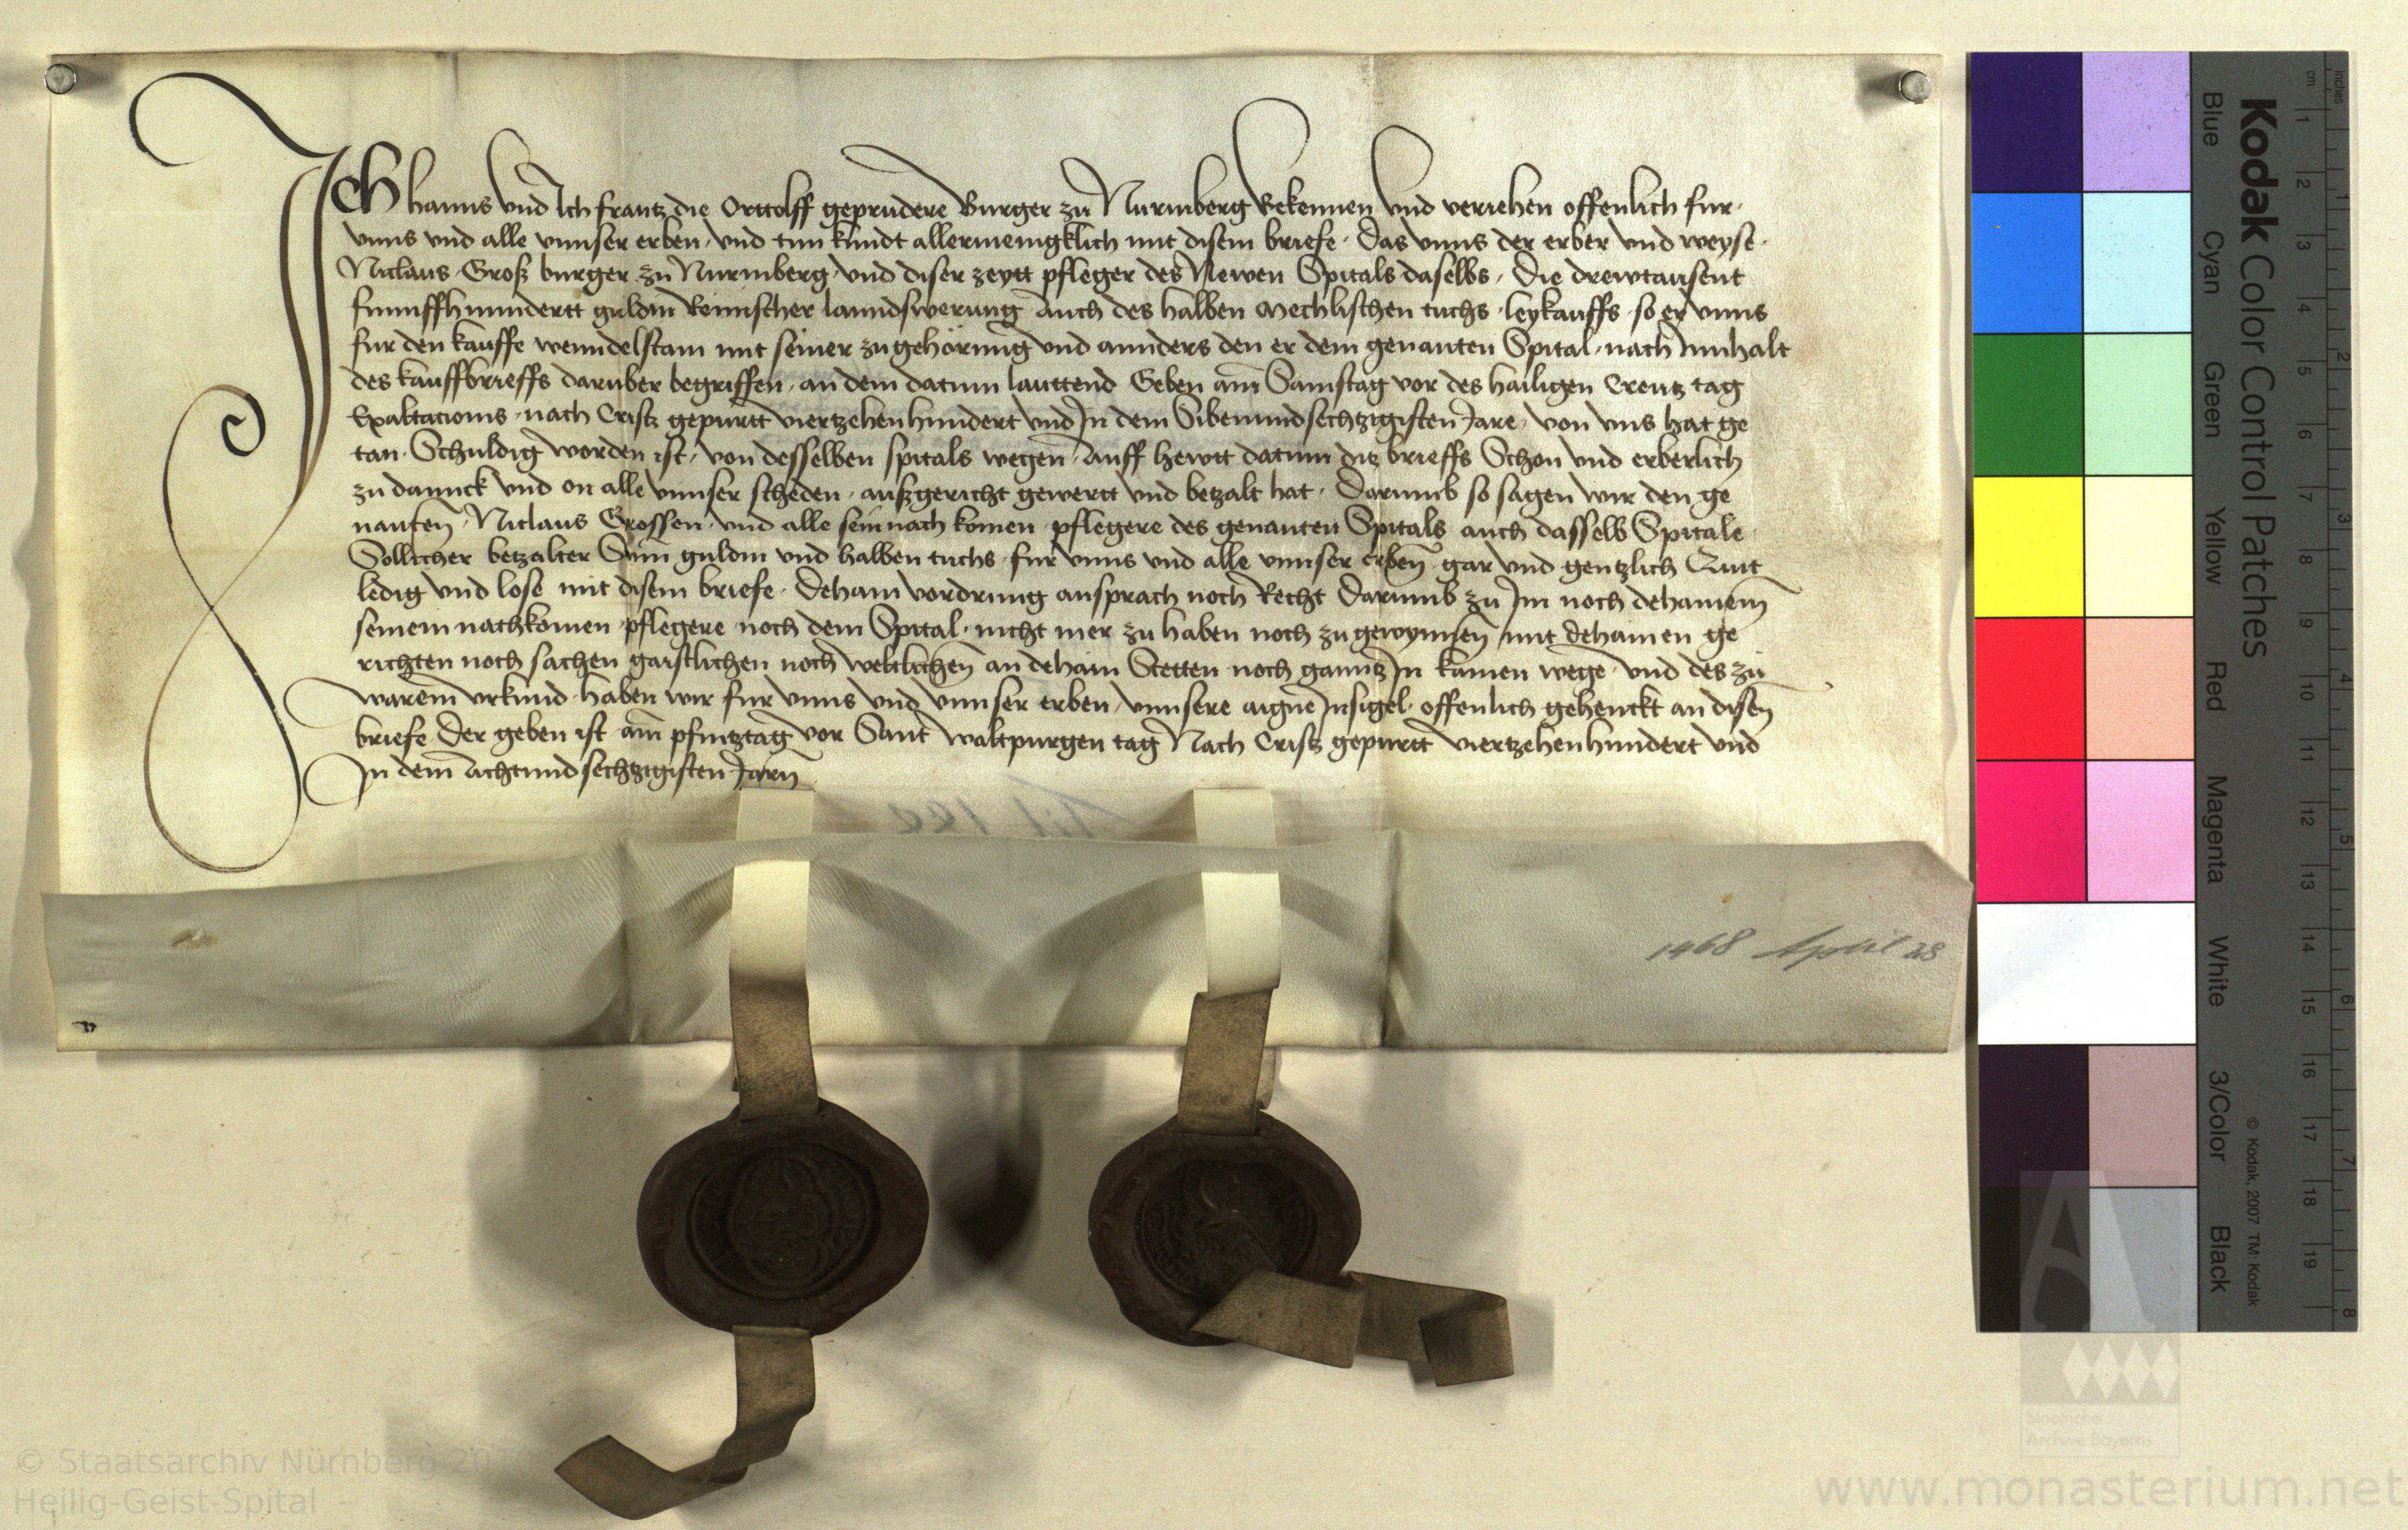 Ich hanns vnd Ich frantz die Ortolff geprudere Burger zu Nurmberg Bekennen vnd veriehen offenlich fur
vnns vnd alle vnnser erben vnd tun kundt allermenigklich mit disem briefe Das vnns der erber vnd weyse
Niclaus Groß burger zu Nurmberg vnd diser zeytt pfleger des Newen Spitals daselbs Die drewtausent
funnffhunndertt guldin Reinischer lanndswerung Auch des halben Mechlischen tuchs leykauffs so er vnns
fur den kauffe wenndelstain mit seiner zugehörung vnd annders den er dem genanten Spital nach Innhalt
des kauffbrieffs daruber begriffen an dem datum lauttend Geben am Samstag vor des hailigen Creutz tag
Exaltacionis nach Cristi gepurtt viertzehenhundert vnd In dem Sibenundsechtzigisten Jare von vns hat ge
tan Schuldig worden ist von desselben spitals wegen Auff hewtt datum ditz brieffs Schon vnd erberlich
zu dannck vnd on alle vnnser scheden außgericht gewertt vnd betzalt hat Darumb so sagen wir den ge
nanten Niclaus Grossen vnd alle sein nachkomen pflegere des genanten Spitals auch dasselb Spitale
Sollicher betzalter Sum guldin vnd halben tuchs fur vnns vnd alle vnnser erben gar vnd gentzlich Quit
ledig vnd lose mit disem briefe Dehain vordrung ansprach noch Recht Darumb zu Im noch dehainem
seinem nachkomen pflegere noch dem Spital nicht mer zu haben noch zu gewynnen mit dehainen ge
richten noch sachen gaistlichen noch weltlichen an dehain Stetten noch ganntz In kainen wege vnd des zu
warem vrkund haben wir fur vnns vnd vnnser erben vnnsere aigne Insigel offenlich gehenckt an disen
briefe Der geben ist am pfintztag vor Sant Waltpurgen tag Nach Cristi gepurtt viertzehenhundert vnd
In dem Achtundsechtzigisten Jarn
1468 April 28
Kodak Color Control Patches
Blue Cyan Green Yellow Red Magenta White 3/Color Black
© Kodak, 2007 TM: Kodak
cm 1 2 3 4 5 6 7 8 9 10 11 12 13 14 15 16 17 18 19
inches 1 2 3 4 5 6 7 8
Staatliche
Archive Bayerns
© Staatsarchiv Nürnberg
Heilig-Geist-Spital -
www.monasterium.net